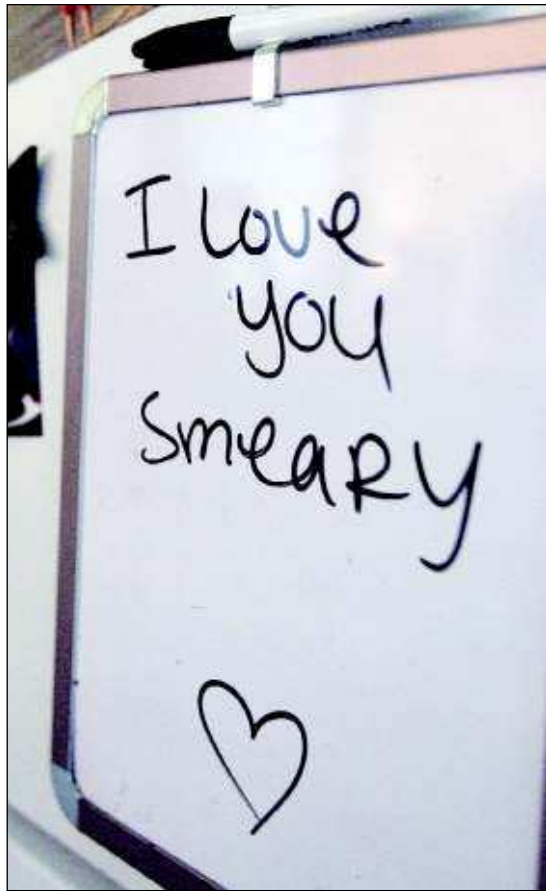 I love
you
SmeaRy